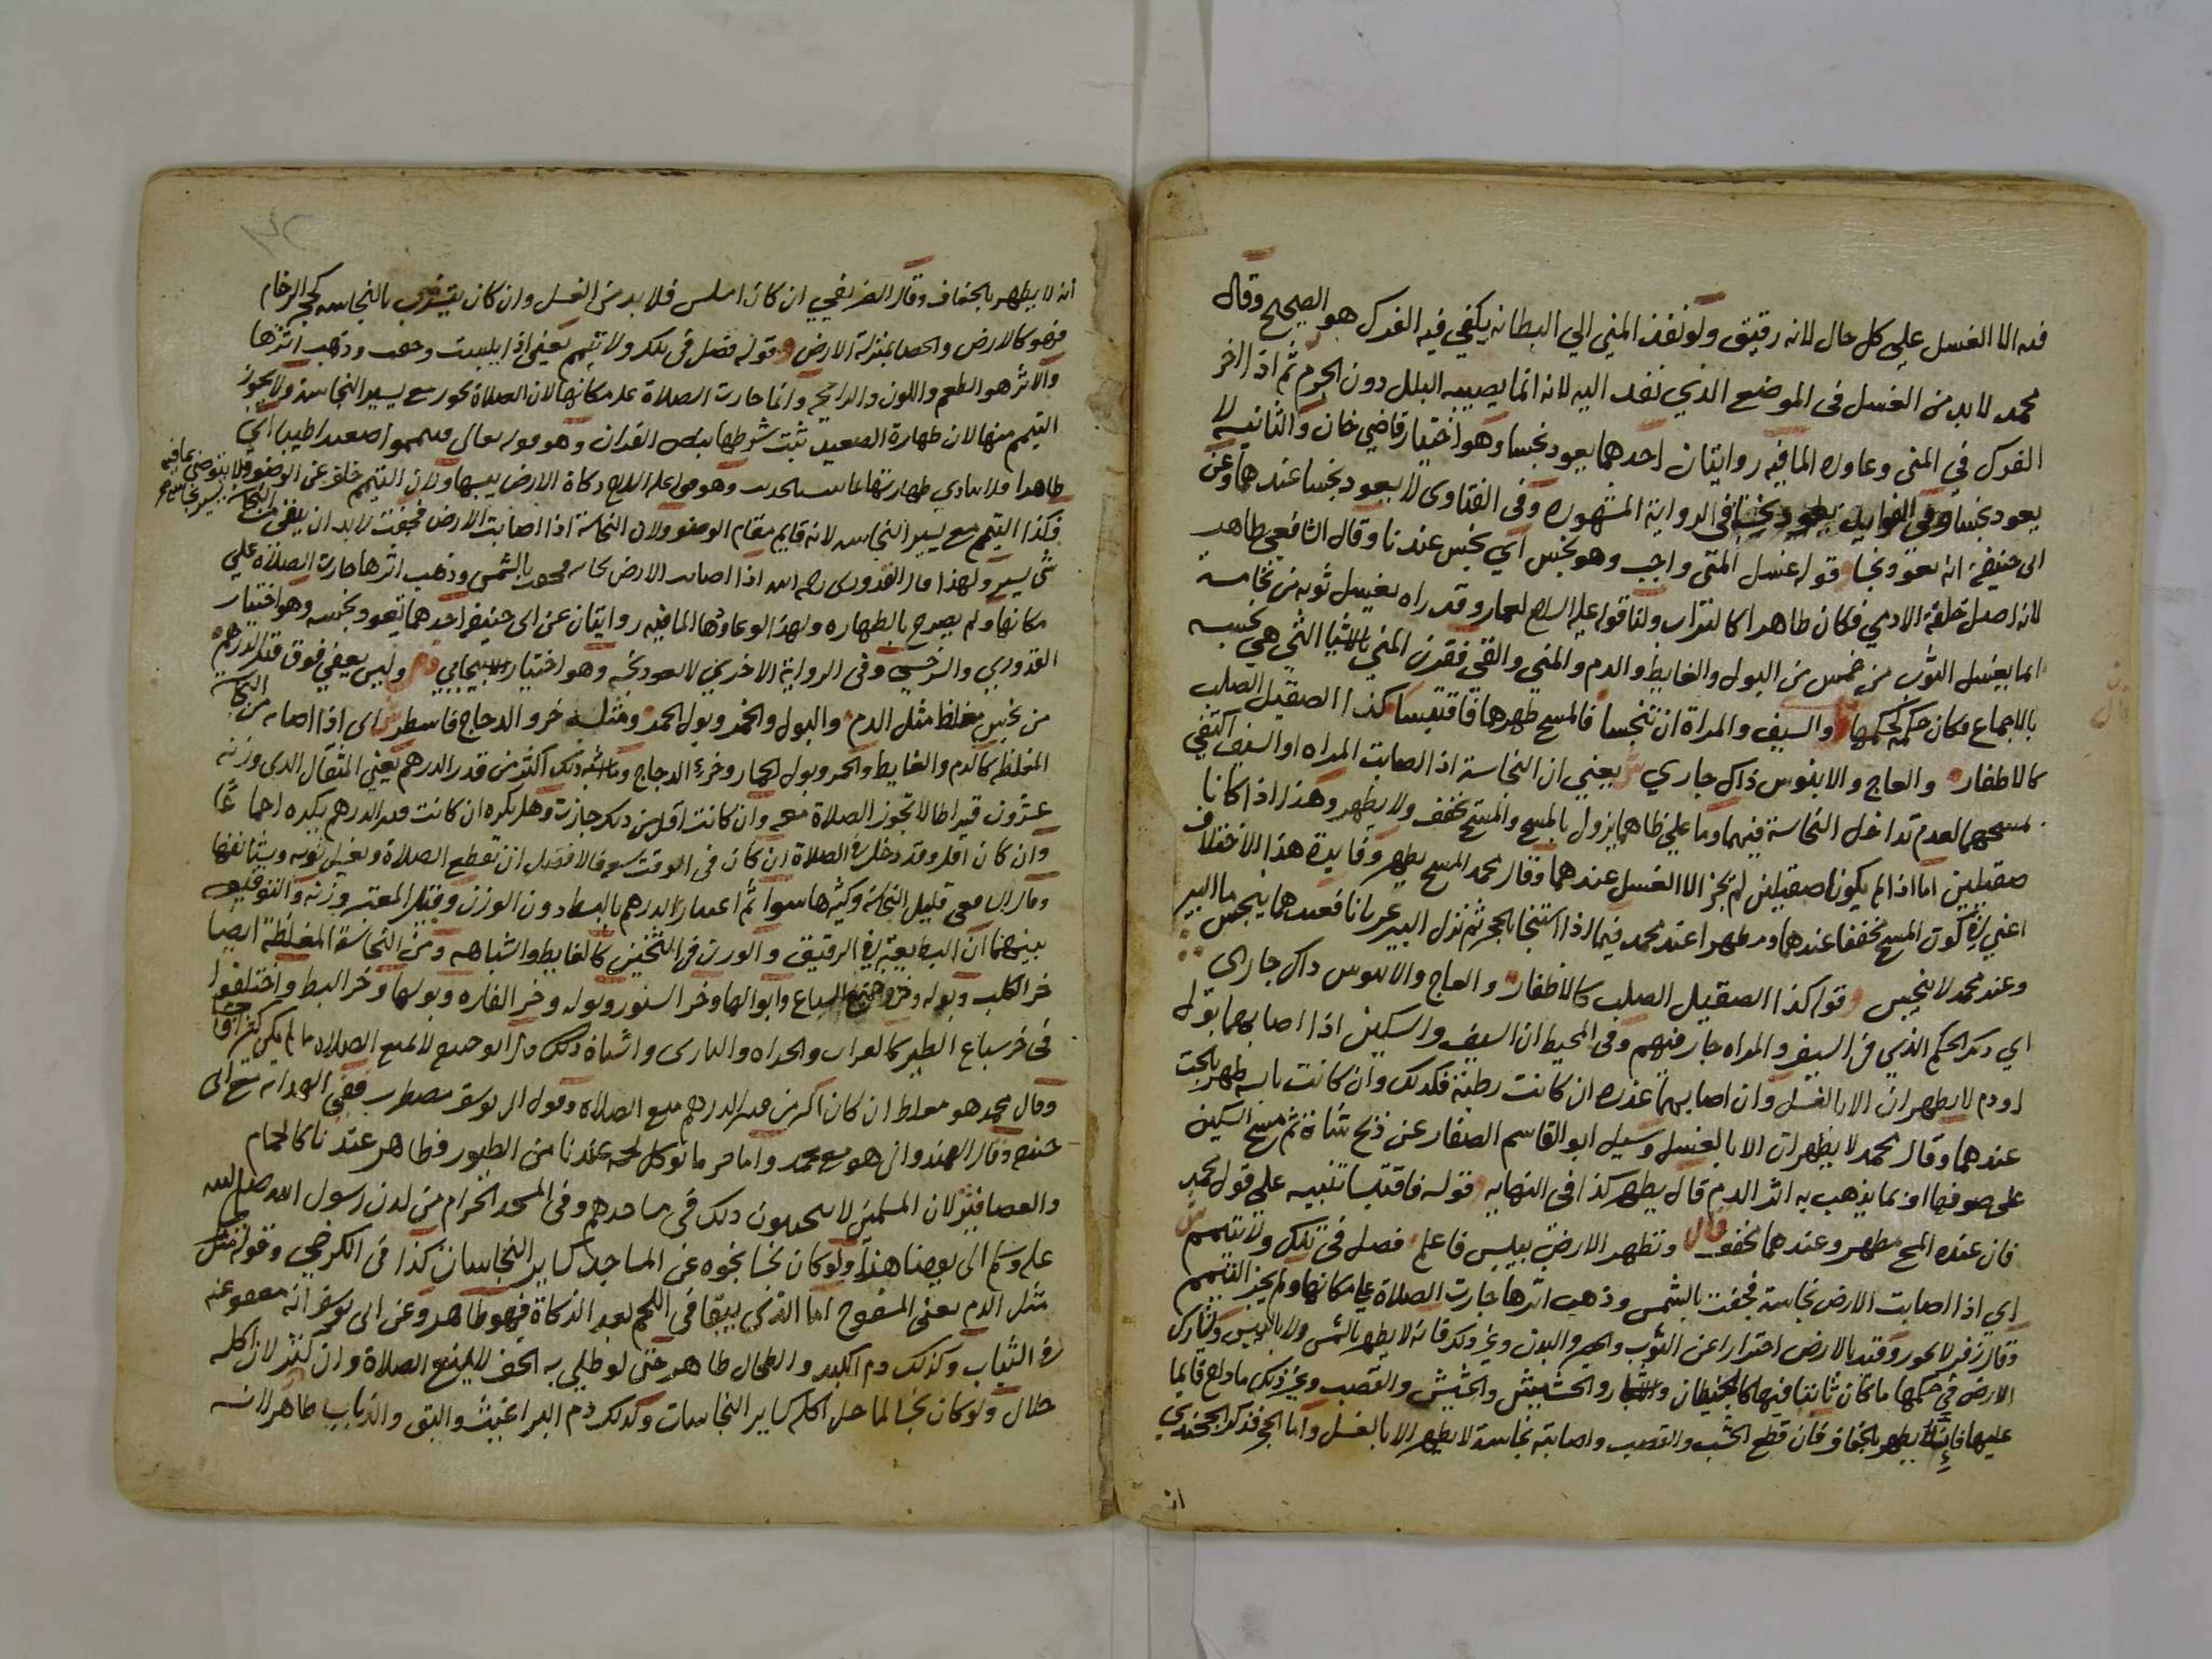 فيه الا الغسل علي كل حال لانه رقيق ولو نفذ المني الي البطانه يكفي فيه الفرك هو الصحيح وقال
محمد لابد من الغسل في الموضع الذي نفد اليه لانه انما يصيبه البلل دون الجرم ثم اذا اجز
الفرك في المني وعاوده الما فيه روايتان احدهما يعود نجسا وهو اختيار قاضي خان والثانيه لا
يعود نجسا في الرواية المشهوره وفي الفتاوى لا يعود نجسا عندهما وعن
ابى حنيفة انه يعود نجسا قوله غسل المني واجب وهو نجس اي نجس عندنا وقال الشافعي طاهر
لانه اصل خلقة الادمي فكان طاهرا كالتراب ولنا قوله عليه السلام لعمار وقد راه يغسل ثوبه من نخامة
انما يغسل الثوب من خمس من البول والغايط والدم والمني والقي فقرن المني بالاشيا التي هي نجسه
بالاجماع فكان حكمه كحكمها والسيف والمراة ان تنجسا فالمسح طهرها فاقتبسا كذا الصقيل الصلب
كالاظفار والعاج والابنوس ذاك جاري ش يعني ان النجاسة اذا اصابت المراه او السيف اكتفي
بمسحهما لعدم تداخل النجاسة فيهما وما علي ظاهرهما يزول بالمسح والمسح مخفف ولا يطهر وهذا اذا كانا
صقيلين اما اذا لم يكونا صقيلين لم يجز الا الغسل عندهما وقال محمد المسح يطهر وفايدة هذا الاختلاف
اعني في كون المسح مخففا عندهما ومطهرا عند محمد فيما اذا استنجا بالحجر ثم نزل البير عريانا فعندهما ينجس ما البير
وعند محمد لا ينجس قوله كذا الصقيل الصلب كالاظفار والعاج والابنوس ذاك جارى
اي ذلك الحكم الذي في السيف والمراه جار فيهم وفى المحيط ان السيف والسكين اذا اصابهما بول
او دم لا يطهران الا بالغسل وان اصابهما عذره ان كانت رطبة فكذلك وان كانت يابسه طهر بالحت
عندهما وقال محمد لا يطهران الا بالغسل وسيل ابو القاسم الصفار عن ذبح شاة ثم مسح السكين
على صوفها او بما يذهب به اثر الدم قال يطهر كذا في النهايه قوله فاقتبسا تنبيه على قول محمد
فان عنده المسح مطهر وعندهما مخفف قال وتطهر الارض بيبس فاعلم فصل في تلك ولا تيمم ش
اي اذا اصابت الارض نجاسة فجفت بالشمس وذهب اثرها جازت الصلاة علي مكانها ولم يجز التيمم
وقال زفر لا يجوز وقيد بالارض احترازا عن الثوب والحصير والبدن وغير ذلك فانه لا يطهر بالشمس ولا باليبس ويشارك
الارض في حكمها ما كان ثابتا فيها كالحيطان والاشجار والحشيش والقصب وغير ذلك ما دام قايما
عليها فانه يطهر بالجفاف فان قطع الخشب والقصب واصابته نجاسة لا يطهر الا بالغسل واما الحجر فذكر الخجندي
ان
انه لا يطهر بالجفاف وقال الصريفي ان كان املس فلا بد من الغسل وان كان يتشرب بالنجاسه كحجر الرخام
فهو كالارض والحصا بمنزلة الارض قوله فصل في تلك ولا تيمم يعني اذا يبست وجفت وذهب اثرها
والاثر هو الطعم واللون والرايحه وانما جازت الصلاة على مكانها لان الصلاة تجوز مع يسير النجاسة ولا يجوز
التيمم منها لان طهارة الصعيد ثبت شرطها بنص القران وهو قوله تعالى فتيمموا صعيدا طيبا اي
طاهرا فلا يتادي طهارتها بما ثبت بالحديث وهو قوله عليه السلام ذكاة الارض يبسها ولان التيمم خلف عن الوضوء ولا يتوضى بما فيه يسير نجاسة
فكذا التيمم مع يسير النجاسه لانه قايم مقام الوضو ولان النجاسة اذا اصابت الارض فجفت لا بد ان يبقى من النجاسة
شى يسير ولهذا قال القدورى رحمه الله اذا اصابت الارض نجاسه فجفت بالشمس وذهب اثرها جازت الصلاة علي
مكانها ولم يصرح بالطهاره ولهذا لو عاودها الما فيه روايتان عن ابى حنيفة احدهما تعود نجسه وهو اختيار
القدوري والسرخسي وفى الرواية الاخرى لا تعود نجسه وهو اختيار الاسبيجابي وليس يعفي فوق قدر الدرهم
من نجس مغلظ مثل الدم والبول والخمر وبول الحمر ومثله خرو الدجاج فاسطر ش اى اذا اصابه من النجاسة
المغلظه كالدم والغايط والخمر وبول الحمار وخرء الدجاج وما اشبه ذلك اكثر من قدر الدرهم يعني المثقال الذى وزنه
عشرون قيراطا لا تجوز الصلاة معه وان كانت اقل من ذلك جازت وهل يكره ان كانت قدر الدرهم يكره اجماعا
وان كان اقل وقد دخل في الصلاة ان كان في الوقت سعه فالافضل ان يقطع الصلاة ويغسل ثوبه ويستانفها
وقال الشافعى قليل النجاسة وكثيرها سوا ثم اعتبار الدرهم بالبسط دون الوزن وقيل المعتبر وزنه والتوفيق
بينهما ان البسط يعتبر في الرقيق والوزن في الثخين كالغايط واشباهه ومن النجاسة المغلظة ايضا
خر الكلب وبوله وخر جميع السباع وابوالها وخر السنور وبوله وخر الفاره وبولها وخر البط واختلفوا
في خر سباع الطير كالغراب والحداه والبازى واشباه ذلك قال ابو حنيفه لا تمنع الصلاه ما لم يكن كثيرا فاحشا
وقال محمد هو مغلظ ان كان اكثر من قدر الدرهم منع الصلاه وقول ابى يوسف مضطرب ففي الهدايه مع ابى
حنيفه وقال الهندوانى هو مع محمد واما خر ما يوكل لحمه عندنا من الطيور فطاهر عندنا كالحمام
والعصافير لان المسلمين لا يتجنبون ذلك في مساجدهم وفي المسجد الحرام من لدن رسول الله صلى الله
عليه وسلم الى يومنا هذا ولو كان نجسا نجوه عن المساجد كساير النجاسات كذا في الكرخي وقوله مثل
مثل الدم يعنى المسفوح اما الذي يبقا في اللحم بعد الذكاة فهو طاهر وعن ابى يوسف انه معفو عنه
في الثياب وكذلك دم الكبد والطحال طاهر حتى لو طلي به الخف لا يمنع الصلاة وان كثر لان اكله
حلال ولو كان نجسا لما حل اكله كساير النجاسات وكذلك دم البراغيث والبق والذباب طاهر لانه